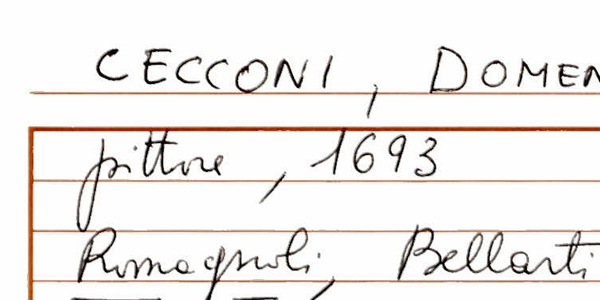 CECCONI, DOMEN
pittore, 1693
Romagnoli, Bellarti